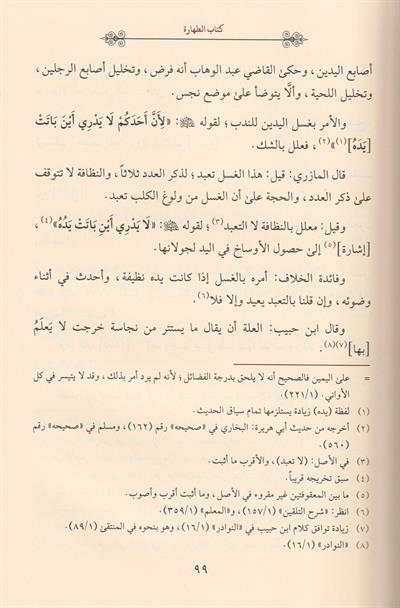 كتاب الطهارة
أصابع اليدين، وحكىٰ القاضي عبد الوهاب أنه فرض، وتخليل أصابع الرجلين،
وتخليل اللحية، وألَّا يتوضأ علىٰ موضع نجس.
والأمر بغسل اليدين للندب؛ لقوله ﷺ: «لِأَنَّ أَحَدَكُمْ لَا يَدْرِي أَيْنَ بَاتَتْ
[يَدُهُ](١)»(٢)، فعلل بالشك.
قال المازري: قيل: هذا الغسل تعبد؛ لذكر العدد ثلاثاً، والنظافة لا تتوقف
علىٰ ذكر العدد، والحجة علىٰ أن الغسل من ولوغ الكلب تعبد.
وقيل: معلل بالنظافة لا التعبد(٣)؛ لقوله ﷺ: «لَا يَدْرِي أَيْنَ بَاتَتْ يَدُهُ»(٤)،
[إشارة](٥) إلىٰ حصول الأوساخ في اليد لجولانها.
وفائدة الخلاف: أمره بالغسل إذا كانت يده نظيفة، وأحدث في أثناء
وضوئه، وإن قلنا بالتعبد يعيد وإلا فلا(٦).
وقال ابن حبيب: العلة أن يقال ما يستتر من نجاسة خرجت لا يَعلَمُ
[بها](٧)(٨).
= علىٰ اليمين فالصحيح أنه لا يلحق بدرجة الفضائل؛ لأنه لم يرد أمر بذلك، وقد لا يتيسر في كل
الأواني. (٢٢١/١).
(١) لفظة (يده) زيادة يستلزمها تمام سياق الحديث.
(٢) أخرجه من حديث أبي هريرة: البخاري في «صحيحه» رقم (١٦٢)، ومسلم في «صحيحه» رقم
(٥٦٠).
(٣) في الأصل: (لا تعبد)، والأقرب ما أثبت.
(٤) سبق تخريجه قريباً.
(٥) ما بين المعقوفتين غير مقروء في الأصل، وما أثبت أقرب وأصوب.
(٦) انظر: «شرح التلقين» (١٥٧/١)، و«المعلم» (٣٥٩/١).
(٧) زيادة توافق كلام ابن حبيب في «النوادر» (١٦/١)، وهو بنحوه في المنتقىٰ (٨٩/١).
(٨) «النوادر» (١٦/١).
٩٩